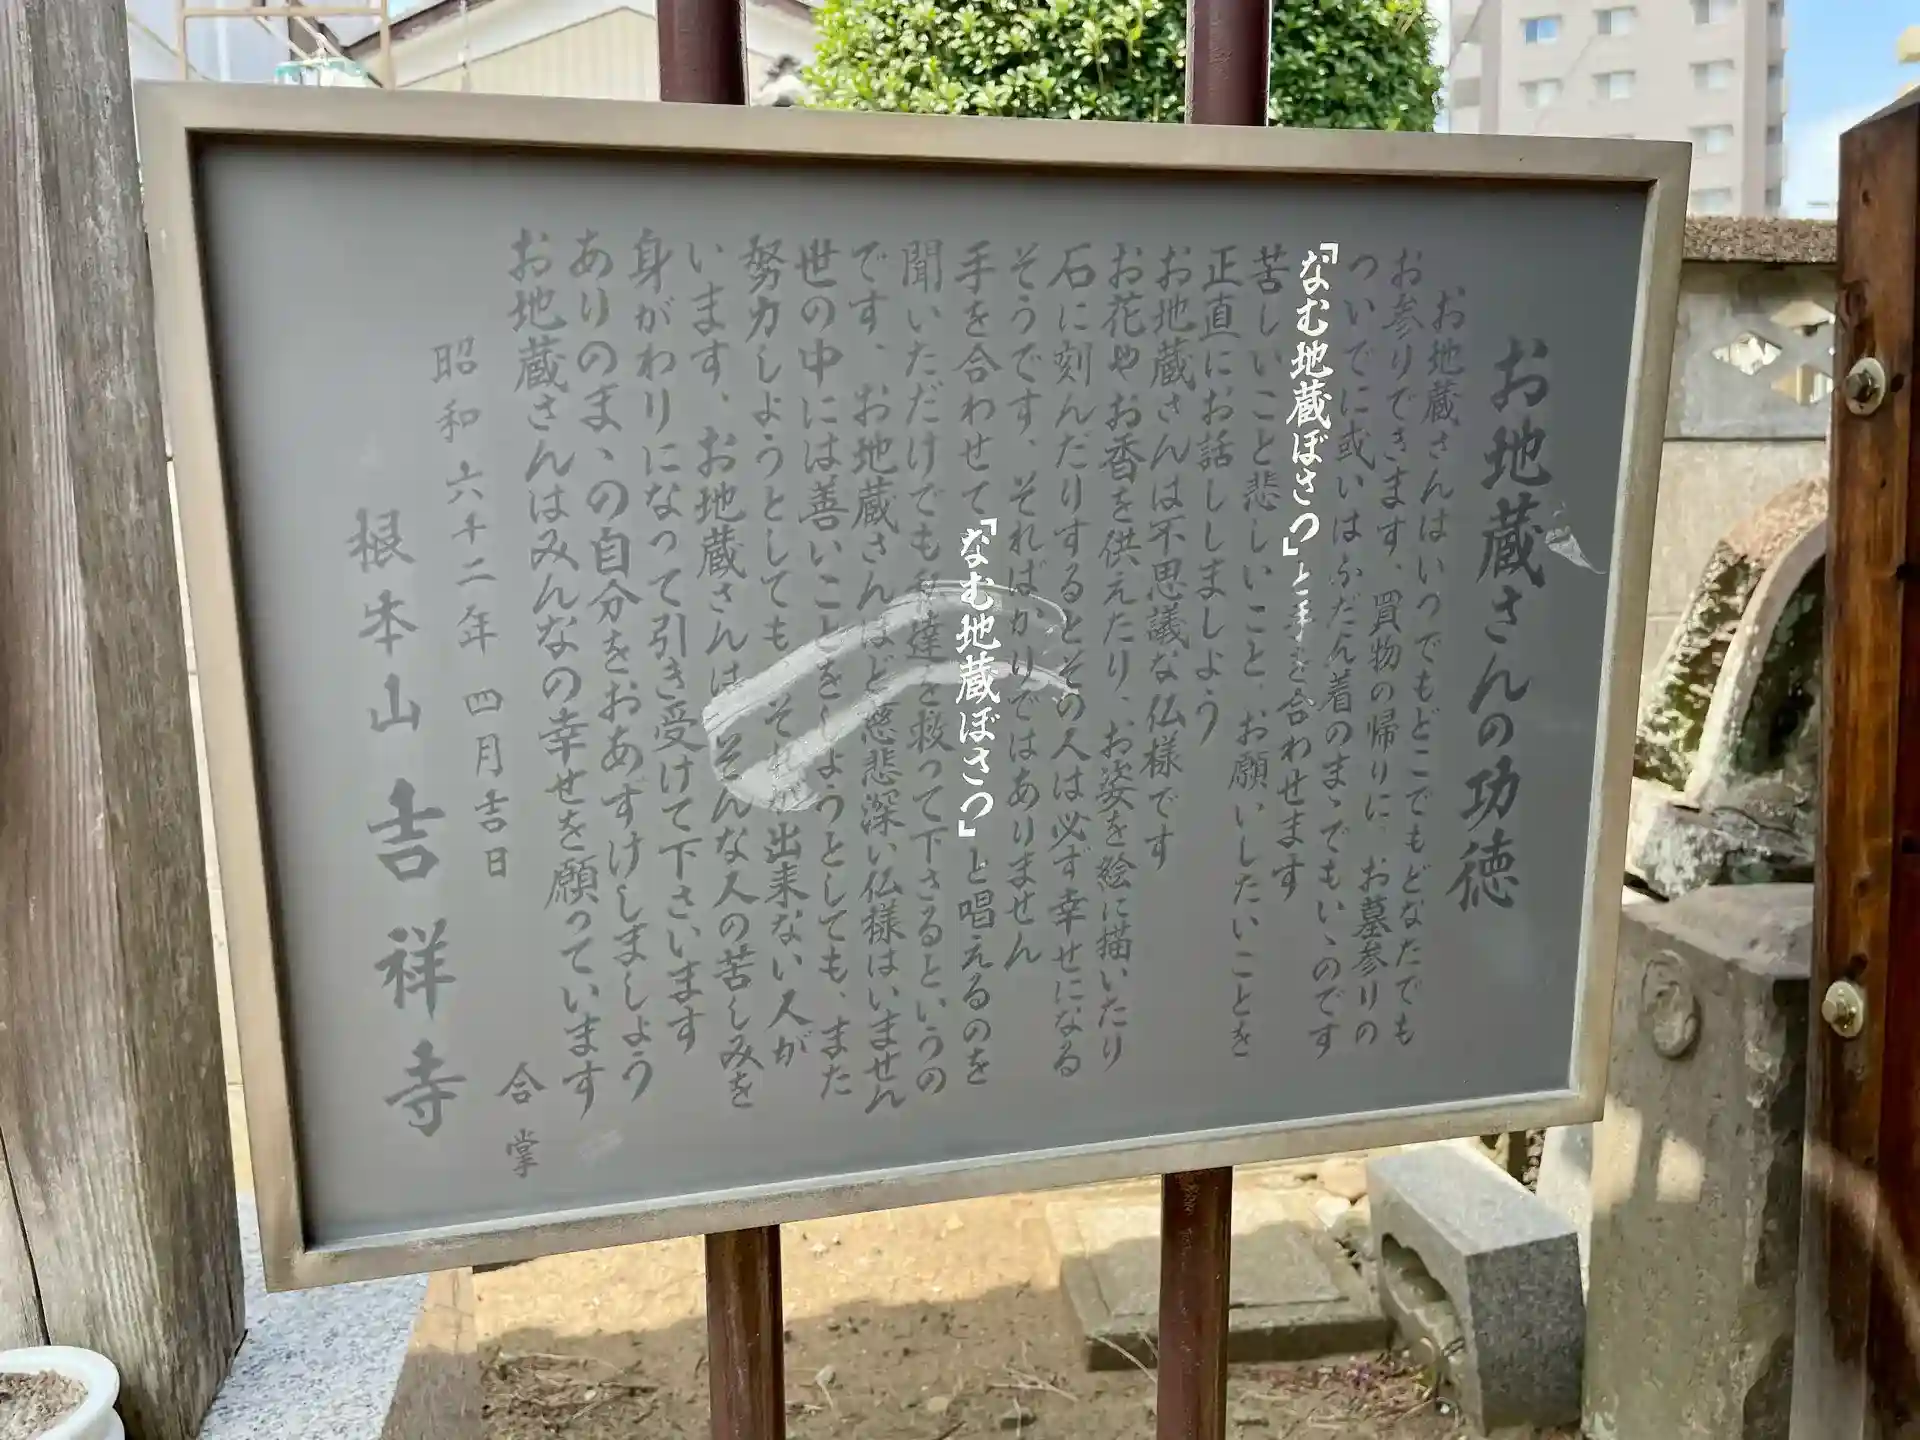 お地蔵さんの功徳
お地蔵さんはいつでもどこでもどなたでも
お参りできます、買物の帰りに、お墓参りの
ついでに或いはふだん着のまゝでもいゝのです
「なむ地蔵ぼさつ」と手を合わせます
苦しいこと悲しいこと、お願いしたいことを
正直にお話ししましょう
お地蔵さんは不思議な仏様です
お花やお香を供えたり、お姿を絵に描いたり
石に刻んだりするとその人は必ず幸せになる
そうです、そればかりではありません
手を合わせて「なむ地蔵ぼさつ」と唱えるのを
聞いただけでも私達を救って下さるというの
です、お地蔵さんほど慈悲深い仏様はいません
世の中には善いことをしようとしても、また
努力しようとしても、それが出来ない人が
います、お地蔵さんはそんな人の苦しみを
身がわりになって引き受けて下さいます
ありのまゝの自分をおあずけしましょう
お地蔵さんはみんなの幸せを願っています
合掌
昭和六十二年四月吉日
根本山吉祥寺